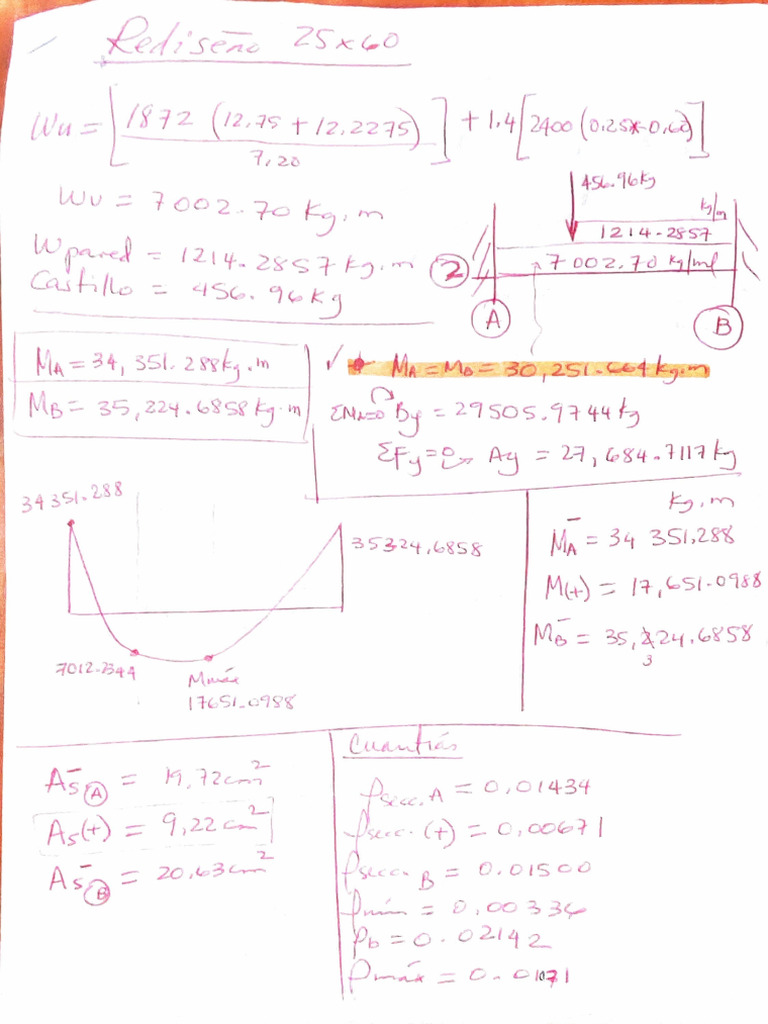 Rediseño 25x60
Wu = [1872 (12.75 + 12.2275) / 7,20] + 1.4[2400 (0.25x0.60)]
Wu = 7002.70 Kg.m
Wpared = 1214.2857 kg.m
Castillo = 456.96 kg
456.96 kg
kg/m
1214.2857
7002.70 kg/ml
2
A
B
MA = 34,351.288 kg.m
MB = 35,224.6858 kg.m
✓ MA = MB = 30,251.664 kg.m
ΣMA=0 By = 29505.9744 kg
ΣFy=0 Ay = 27,684.7117 kg
34351.288
35324,6858
7012.2344
Mmáx
17651.0988
Kg.m
MA⁻ = 34 351,288
M(+) = 17,651.0988
MB⁻ = 35,224.6858
3
As⁻ A = 19,72 cm²
As(+) = 9,22 cm²
As⁻ B = 20,63 cm²
Cuantías
ρsecc.A = 0,01434
ρsecc.(+) = 0,00671
ρsecc.B = 0.01500
ρmín = 0,00336
ρb = 0.02142
ρmáx = 0.01071